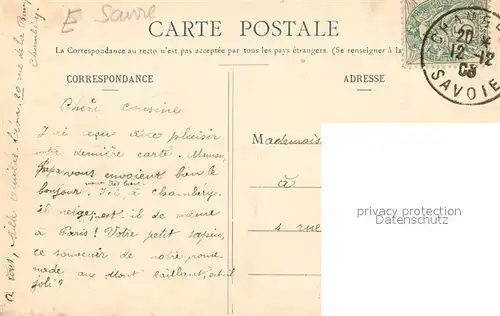 E Savoie
CARTE POSTALE
La Correspondance au recto n'est pas acceptée par tous les pays étrangers. (Se renseigner à la
CORRESPONDANCE
ADRESSE
CHAMBÉ
20
12-12
03
SAVOIE
Chère cousine
J'ai reçu avec plaisir
votre dernière carte. Maman,
Papa vous envoient bien le
bonjour. Ici, à Chambéry
il neige, est il de même
à Paris! Votre petit sapin,
ce souvenir de notre prome
nade au Mont caillant, est-il
joli?
à tous, mille amitiés.
20 rue de la
Chambéry
Mademois
à
4 rue
privacy protection
Datenschutz